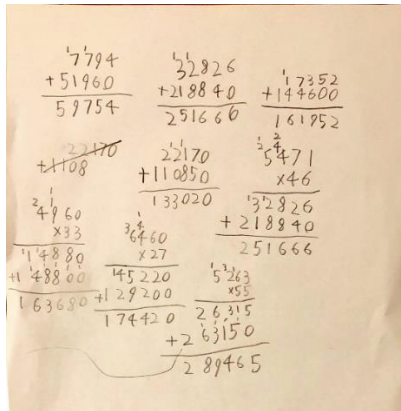 7794
+51960
59754
32826
+218840
251666
17352
+144600
161952
22170
+1108
22170
+110850
133020
5471
×46
32826
+218840
251666
4960
×33
14880
+148800
163680
6460
×27
45220
+129200
174420
5263
×55
26315
+263150
289465